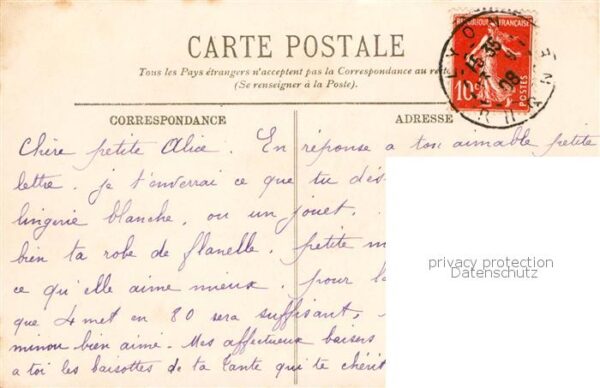 CARTE POSTALE
Tous les Pays étrangers n'acceptent pas la Correspondance au
(Se renseigner à la Poste).
RÉPUBLIQUE FRANÇAISE
10
POSTES
LYON
RHÔNE
15 35
08
CORRESPONDANCE
ADRESSE
Chère petite Alice. En réponse a ton aimable petite
lettre. je t'enverrai ce que tu
lingerie blanche, ou un jouet.
bien ta robe de flanelle. petite
ce qu'elle aime mieux. pour
que 4 met en 80 sera suffisant,
minou bien aimé. Mes affectueux baisers
a toi les baisottes de ta tante qui te chérit
privacy protection
Datenschutz